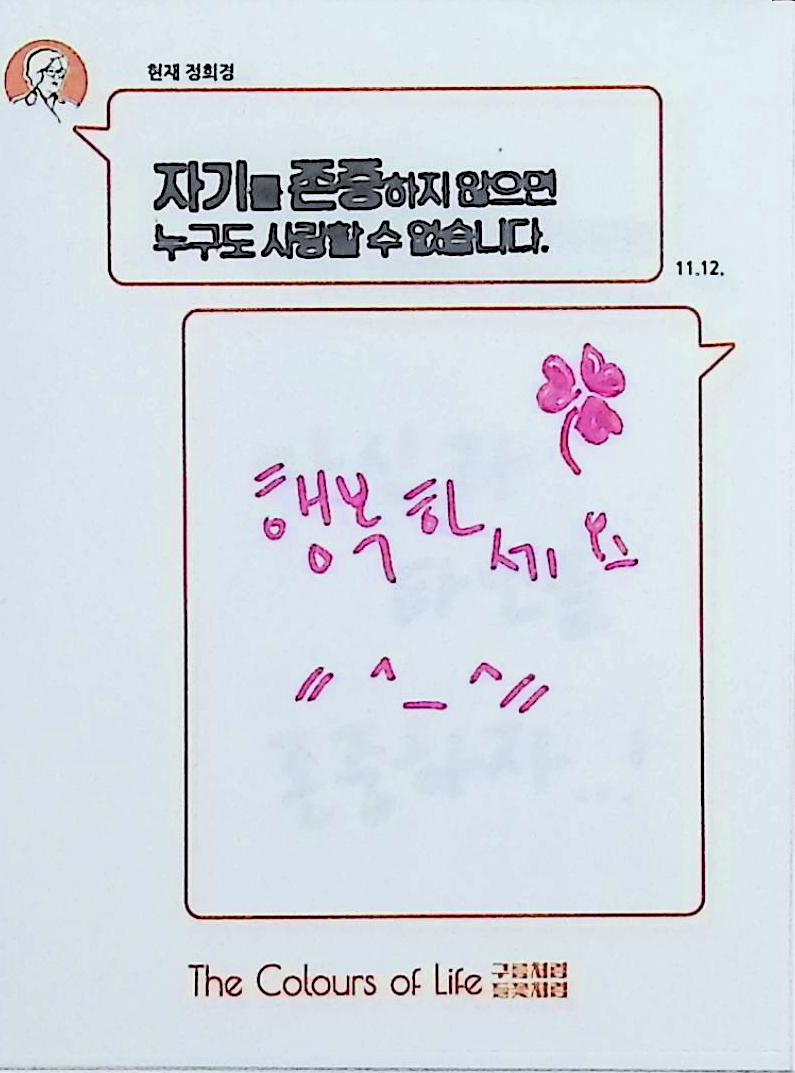 현재 정희경
자기를 존중하지 않으면
누구도 사랑할 수 없습니다.
11.12.
행복한 세요
〃 ^_^〃
The Colours of Life 구름처럼
들꽃처럼